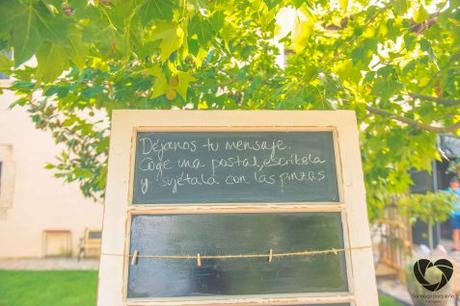 Déjanos tu mensaje.
Coge una postal, escríbela
y sujétala con las pinzas